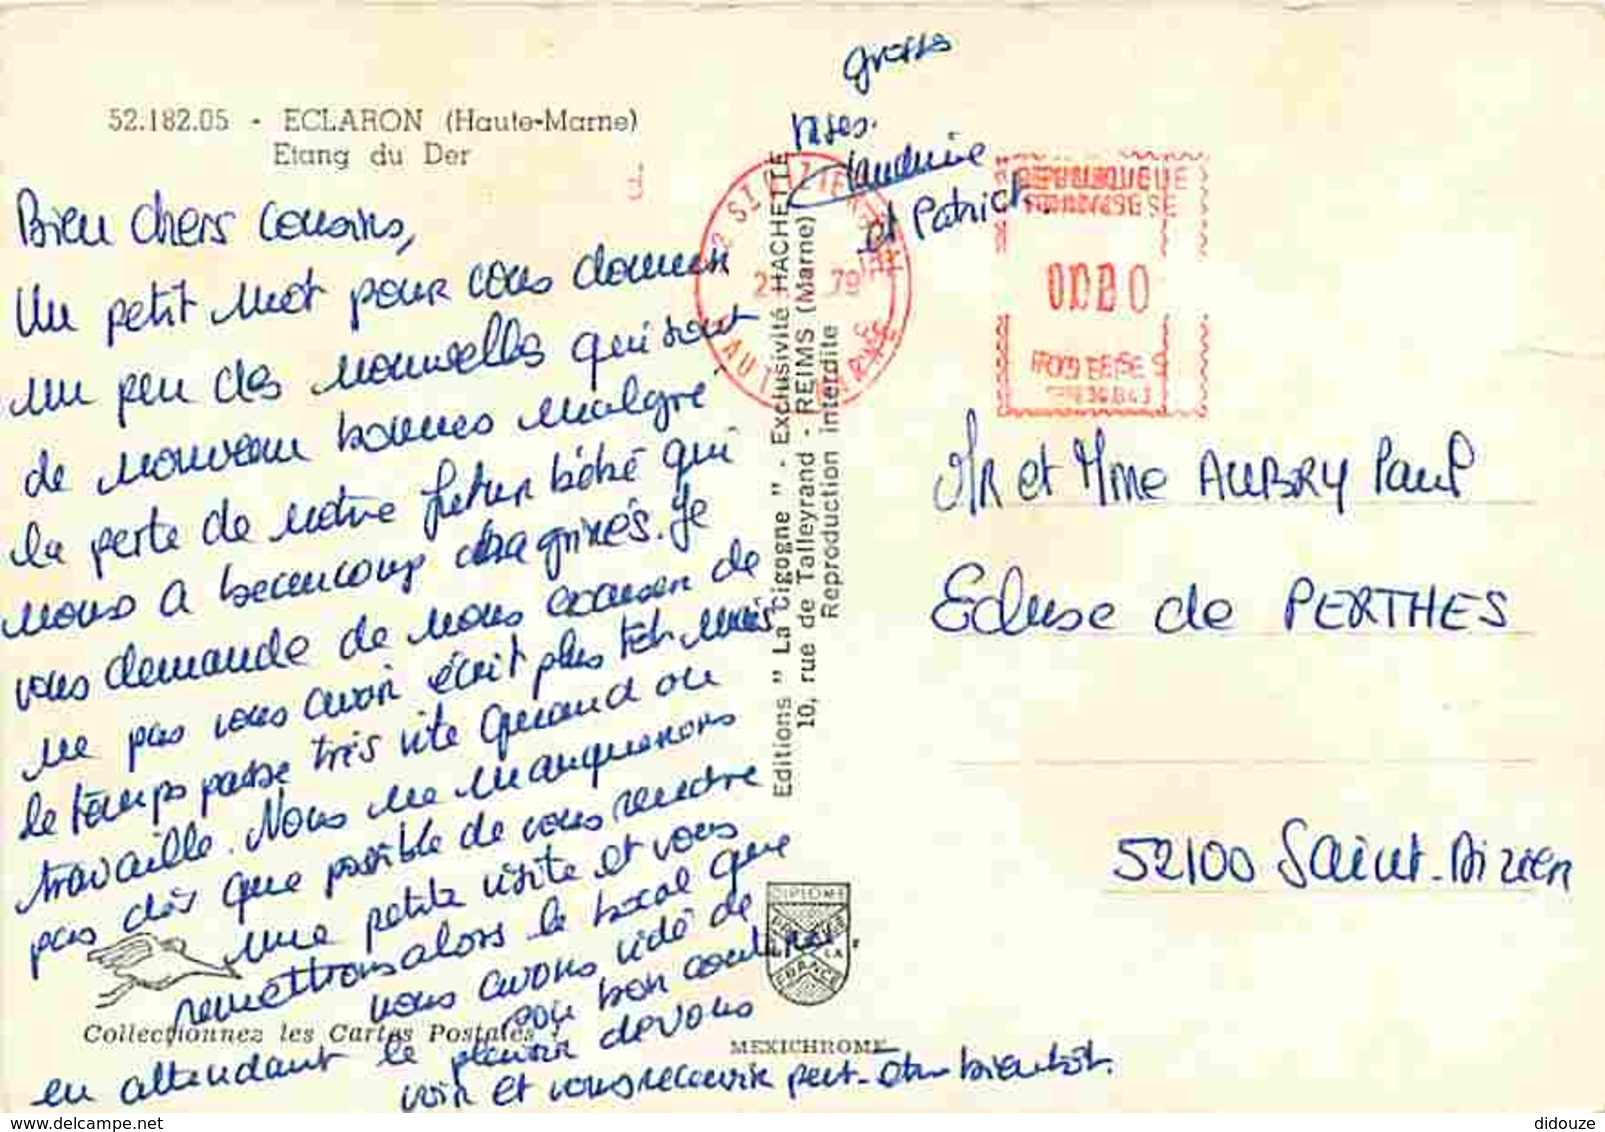 52.182.05 - ECLARON (Haute-Marne)
Etang du Der
Bien chers cousins,
Un petit mot pour vous donner
un peu des nouvelles qui sont
de nouveau bonnes malgré
la perte de notre futur bébé qui
nous a beaucoup chagrinés. Je
vous demande de nous excuser de
ne pas vous avoir écrit plus tôt mais
le temps passe très vite quand on
travaille. Nous ne manquerons
pas dès que possible de vous rendre
une petite visite et vous
remettrons alors le bocal que
nous avons vidé de
son bon contenu.
en attendant le plaisir de vous
voir et vous recevoir peut-être bientôt.
grosses
bises.
Claudine
et Patrick.
Editions "La Cigogne" - Exclusivité HACHETTE
10, rue de Talleyrand - REIMS (Marne)
Reproduction interdite
REPUBLIQUE
FRANCAISE
0080
Mr et Mme AUBRY Paul
Ecluse de PERTHES
52100 Saint-Dizier
DIPLOME
FRANCE
Collectionnez les Cartes Postales
MEXICHROME
didouze